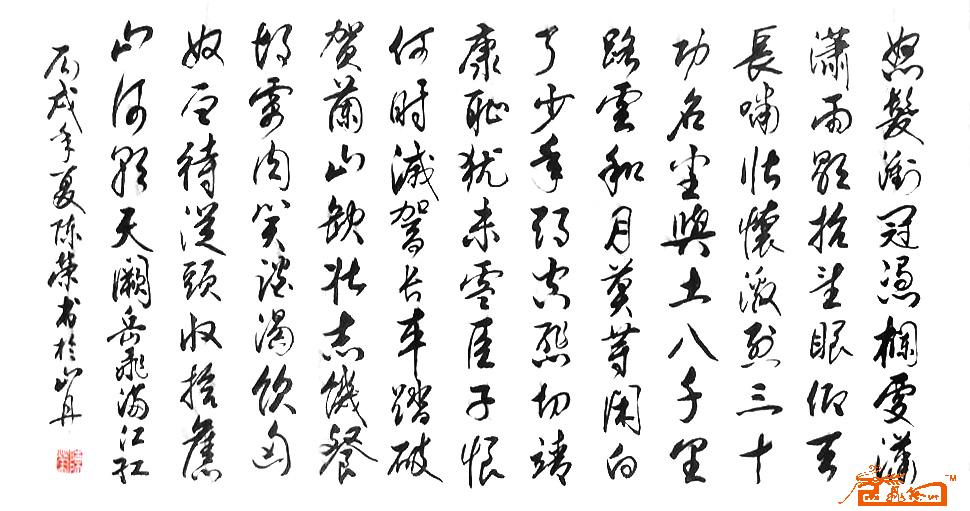 怒髮衝冠憑欄處瀟
瀟雨歇抬望眼仰天
長嘯壯懷激烈三十
功名尘與土八千里
路雲和月莫等闲白
了少年頭空悲切靖
康耻猶未雪臣子恨
何時滅駕长车踏破
賀蘭山缺壮志饑餐
胡虜肉笑談渴飲匈
奴血待從頭收拾舊
山河朝天闕岳飛滿江紅
丙戌年夏陈榮书於山丹